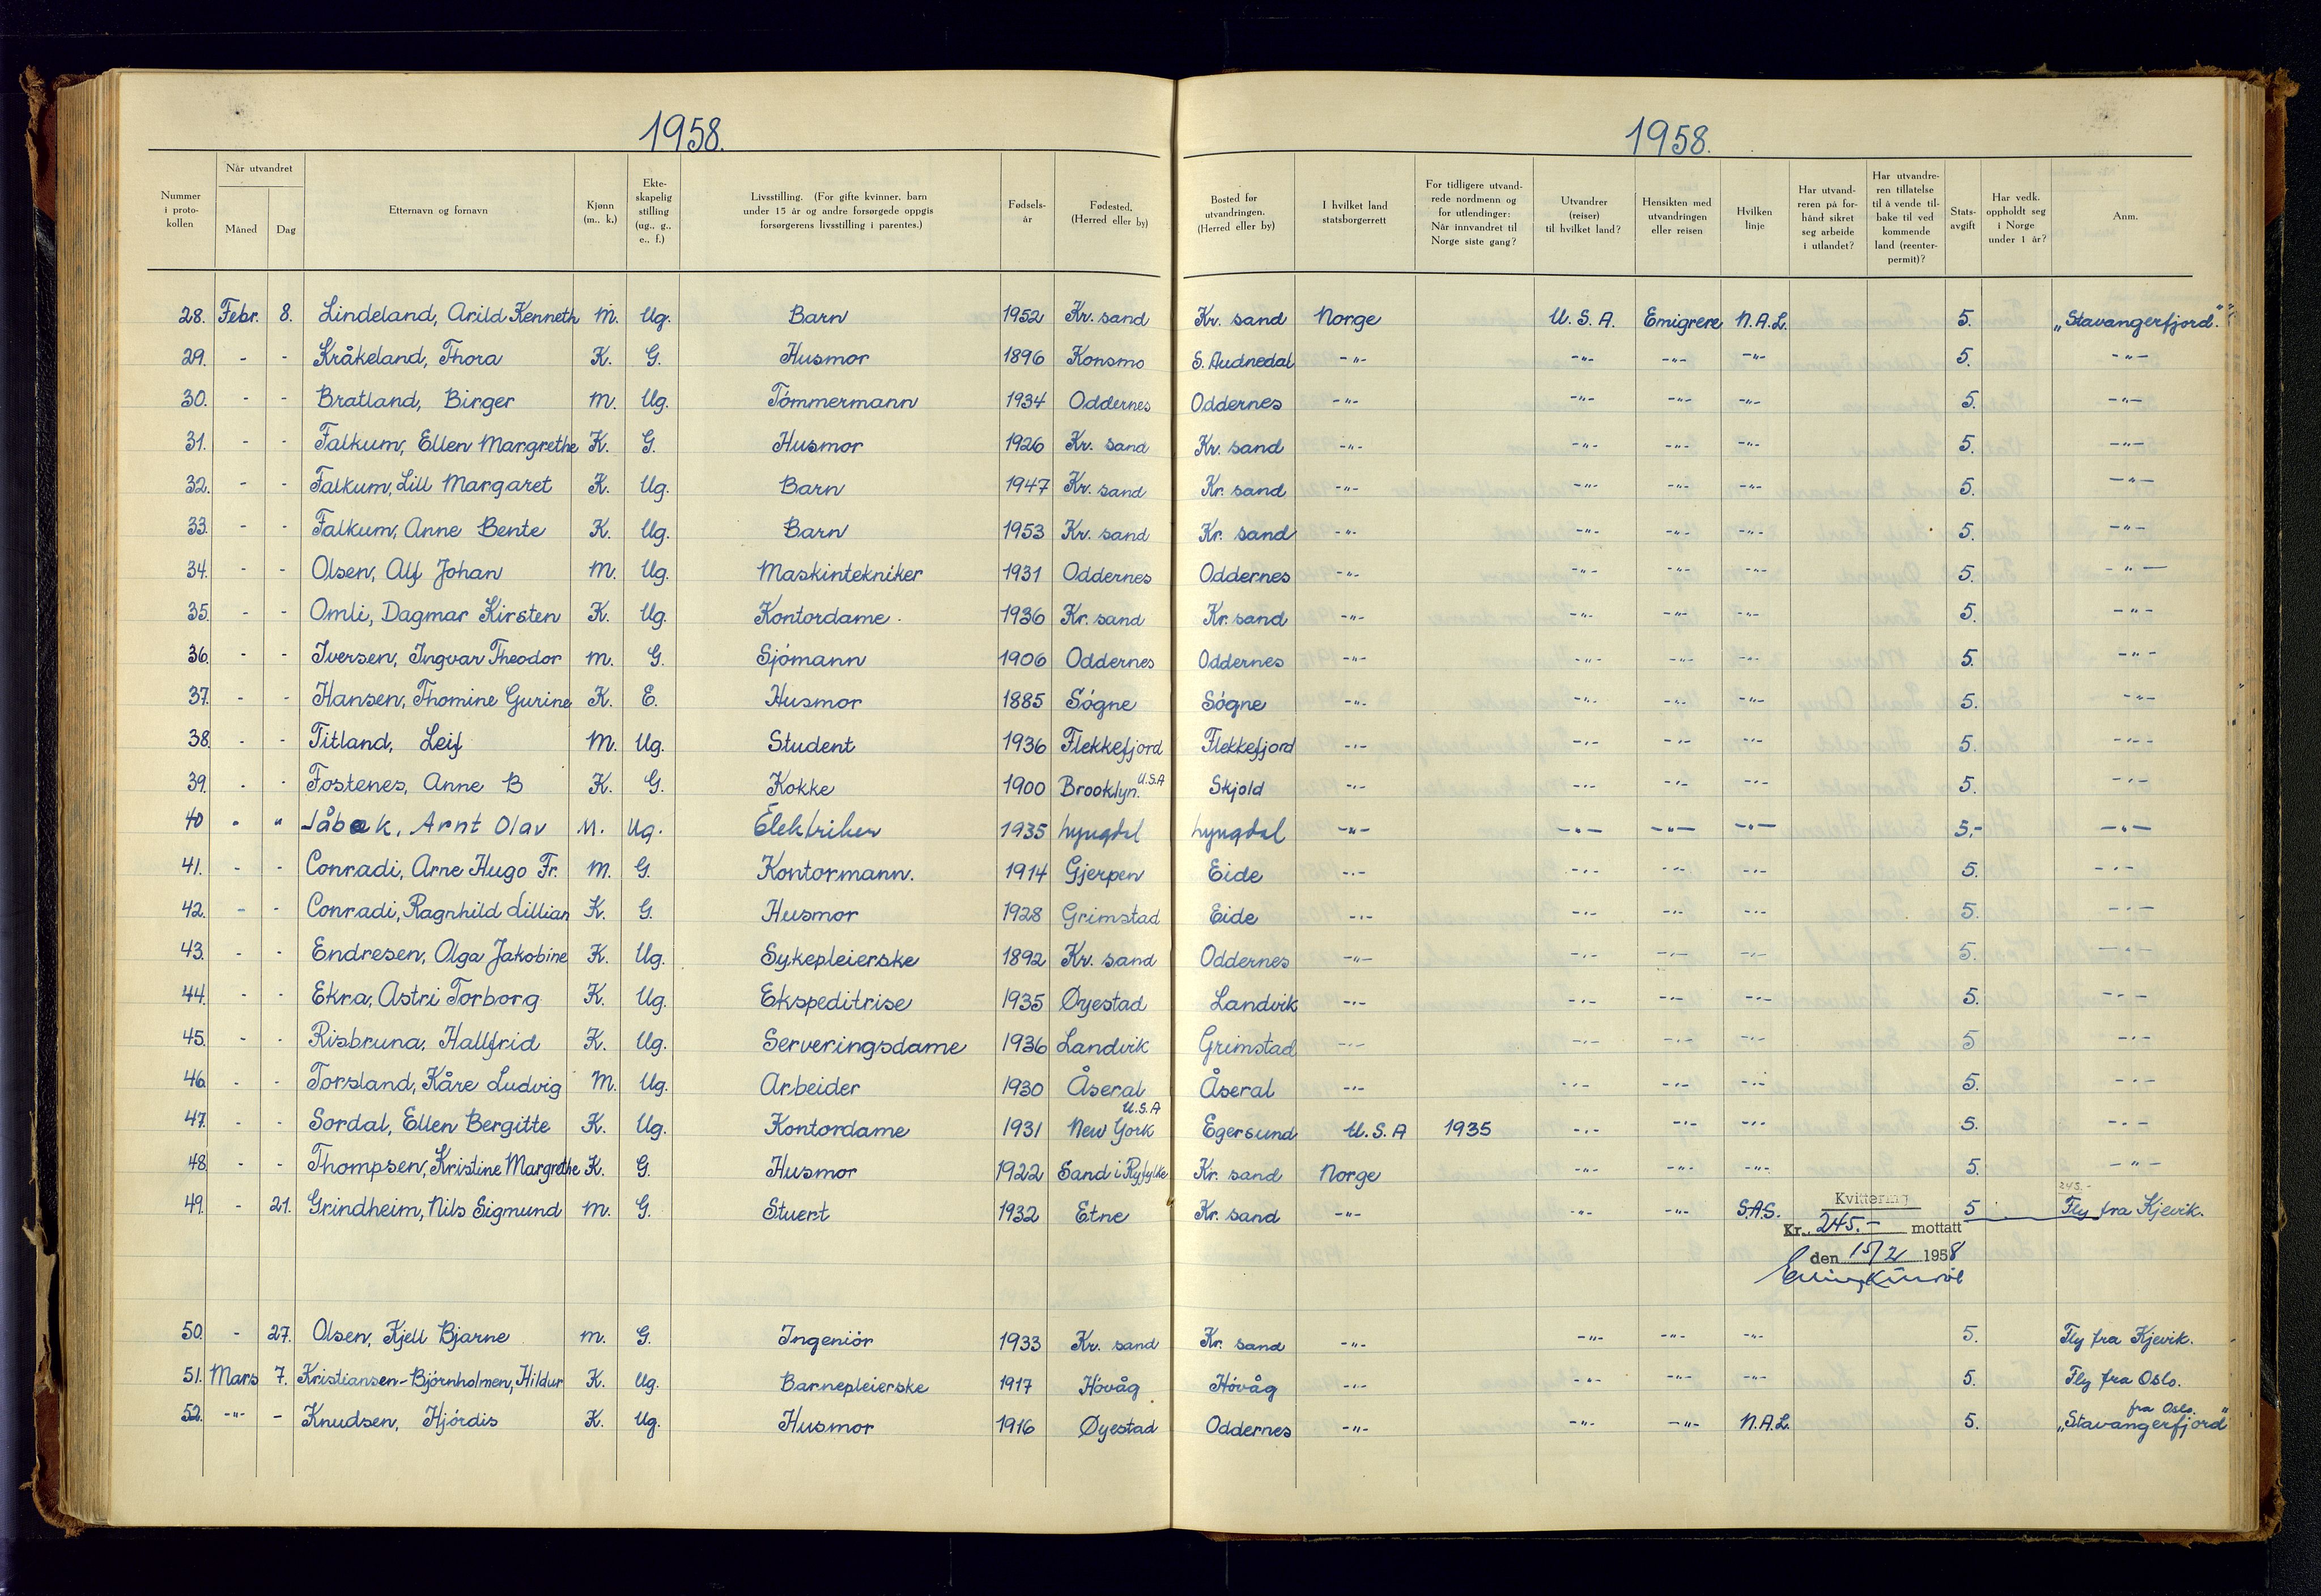 1958.
1958.
Nummer i proto-kollen | Når utvandret | Måned | Dag | Etternavn og fornavn | Kjønn (m., k.) | Ekte-skapelig stilling (ug., g., e., f.) | Livsstilling. (For gifte kvinner, barn under 15 år og andre forsørgede oppgis forsørgerens livsstilling i parentes.) | Fødsels-år | Fødested. (Herred eller by) | Bosted før utvandringen. (Herred eller by) | I hvilket land statsborgerrett | For tidligere utvand-rede nordmenn og for utlendinger: Når innvandret til Norge siste gang? | Utvandrer (reiser) til hvilket land? | Hensikten med utvandringen eller reisen | Hvilken linje | Har utvand-reren på for-hånd sikret seg arbeide i utlandet? | Har utvandre-ren tillatelse til å vende til-bake til ved kommende land (reenter-permit)? | Stats-avgift | Har vedk. oppholdt seg i Norge under 1 år? | Anm.
28. Febr. 8. Lindeland, Arild Kenneth M. Ug. Barn 1952 Kr. sand Kr. sand Norge U.S.A. Emigrere N.A.L. 5. „Stavangerfjord."
29. - - Kråkeland, Thora K. G. Husmor 1896 Konsmo S. Audnedal -"- -"- -"- -"- 5. -"-
30. - - Bratland, Birger M. Ug. Tömmermann 1934 Oddernes Oddernes -"- -"- -"- -"- 5. -"-
31. - - Falkum, Ellen Margrethe K. G. Husmor 1926 Kr. sand Kr. sand -"- -"- -"- -"- 5. -"-
32. - - Falkum, Lill Margaret K. Ug. Barn 1947 Kr. sand Kr. sand -"- -"- -"- -"- 5. -"-
33. - - Falkum, Anne Bente K. Ug. Barn 1953 Kr. sand Kr. sand -"- -"- -"- -"- 5. -"-
34. - - Olsen, Alf Johan M. Ug. Maskintekniker 1931 Oddernes Oddernes -"- -"- -"- -"- 5. -"-
35. - - Omli, Dagmar Kirsten K. Ug. Kontordame. 1936 Kr. sand Kr. sand -"- -"- -"- -"- 5. -"-
36. - - Iversen, Ingvar Theodor M. G. Sjómann 1906 Oddernes Oddernes -"- -"- -"- -"- 5. -"-
37. - - Hansen, Thomine Gurine K. E. Husmor 1885 Sógne Sógne -"- -"- -"- -"- 5. -"-
38. - - Titland, Leif M. Ug. Student 1936 Flekkefjord Flekkefjord -"- -"- -"- -"- 5. -"-
39. - - Fostenes, Anne B K. G. Kokke 1900 Brooklyn. U.S.A Skjold -"- -"- -"- -"- 5. -"-
40 " " Jåbæk, Arnt Olav M. Ug. Elektriker 1935 Lyngdal Lyngdal -"- -"- -"- -"- 5,- -"-
41. - - Conradi, Arne Hugo Fr. M. G. Kontormann. 1914 Gjerpen Eide -"- -"- -"- -"- 5. -"-
42. - - Conradi, Ragnhild Lillian K. G. Husmor 1928 Grimstad Eide -"- -"- -"- -"- 5. -"-
43. - - Endresen, Olga Jakobine K. Ug. Sykepleierske 1892 Kr. sand Oddernes -"- -"- -"- -"- 5. -"-
44. - - Ekra, Astri Torborg K. Ug. Ekspeditrise 1935 Øyestad Landvik -"- -"- -"- -"- 5. -"-
45. - - Risbruna, Hallfrid K. Ug. Serveringsdame 1936 Landvik Grimstad -"- -"- -"- -"- 5 -"-
46. - - Torsland, Kåre Ludvig M. Ug. Arbeider 1930 Åseral Åseral -"- -"- -"- -"- 5. -"-
47. - - Sordal, Ellen Bergitte K. Ug. Kontordame 1931 New York U.S.A Egersund U.S.A 1935 -"- -"- -"- 5. -"-
48. - - Thompsen, Kristine Margrethe K. G. Husmor 1922 Sand i Ryfylke Kr. sand Norge -"- -"- -"- 5. -"-
245.-
49. - 21. Grindheim, Nils Sigmund M. G. Stuert 1932 Etne Kr. sand -"- -"- -"- S.A.S. 5 Fly fra Kjevik.
Kvittering
Kr. 245.- mottatt
den 15/2 1958
50. - 27. Olsen, Kjell Bjarne M. G. Ingeniór 1933 Kr. sand Kr. sand -"- -"- -"- -"- 5. Fly fra Kjevik.
51. Mars 7. Kristiansen-Bjórnholmen, Hildur K. Ug. Barnepleierske 1917 Hóvåg Hóvåg -"- -"- -"- -"- 5. Fly fra Oslo.
52. -"- - Knudsen, Hjórdis K. Ug. Husmor 1916 Øyestad Oddernes -"- -"- -"- N.A.L. 5. „Stavangerfjord" fra Oslo.